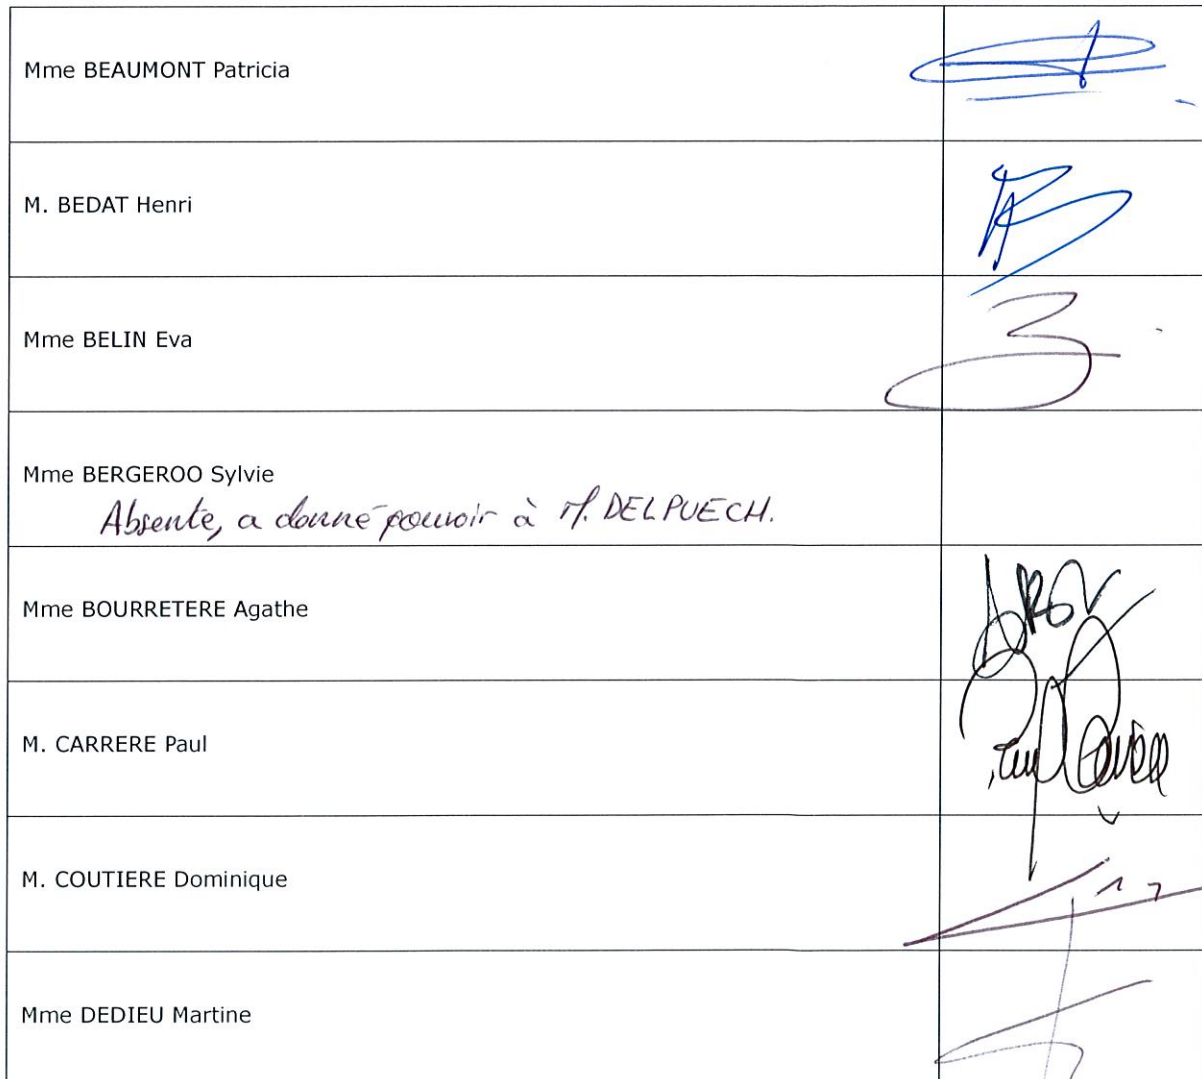 Mme BEAUMONT Patricia
M. BEDAT Henri
Mme BELIN Eva
Mme BERGEROO Sylvie
Absente, a donné pouvoir à M. DELPUECH.
Mme BOURRETERE Agathe
M. CARRERE Paul
M. COUTIERE Dominique
Mme DEDIEU Martine